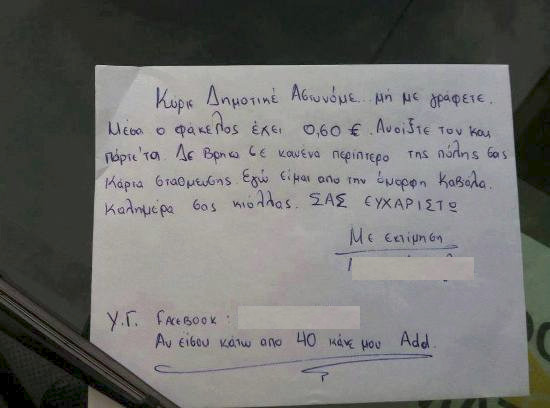 Κύριε Δημοτικέ Αστυνόμε... μή με γράφετε.
Μέσα ο φάκελος έχει 0,60 €. Ανοίξτε τον και
πάρτε 'τα. Δε βρήκα σε κανένα περίπτερο της πόλης σας
Κάρτα στάθμευσης. Εγώ είμαι απο την όμορφη Καβάλα.
Καλημέρα σας κιόλλας. ΣΑΣ ΕΥΧΑΡΙΣΤΩ
Με εκτίμηση
Υ.Γ. FACEBOOK :
Αν είσου κάτω απο 40 κάνε μου Add.